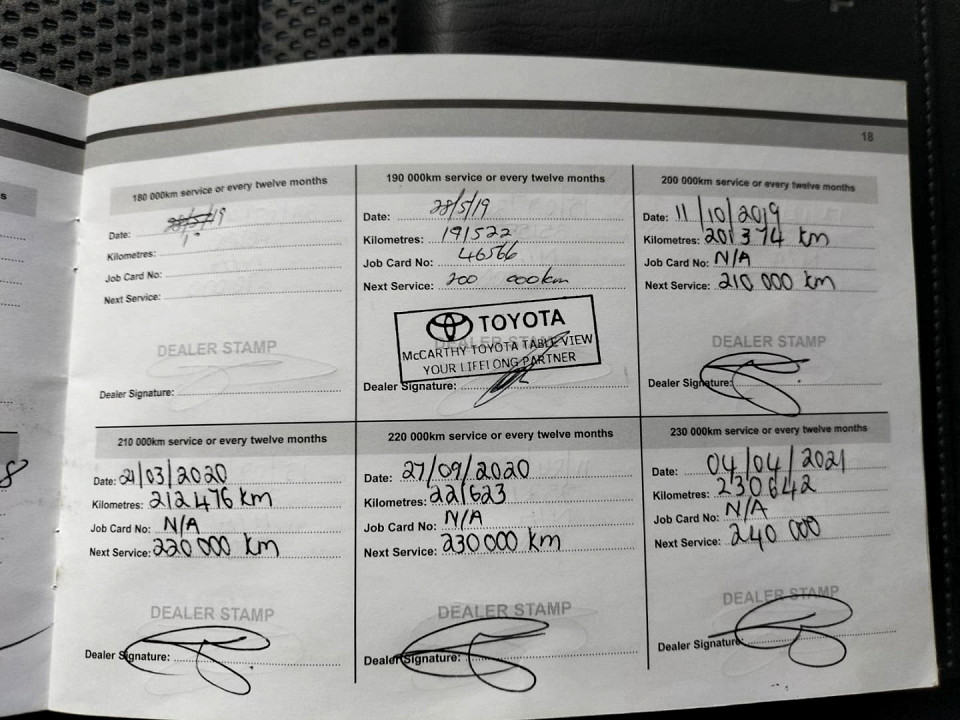 18
180 000km service or every twelve months
Date: 28/5/19
Kilometres:
Job Card No:
Next Service:
DEALER STAMP
Dealer Signature:
190 000km service or every twelve months
Date: 28/5/19
Kilometres: 191522
Job Card No: 46566
Next Service: 200 000km
TOYOTA
DEALER STAMP
McCARTHY TOYOTA TABLE VIEW
YOUR LIFELONG PARTNER
Dealer Signature:
200 000km service or every twelve months
Date: 11/10/2019
Kilometres: 201374 km
Job Card No: N/A
Next Service: 210 000 km
DEALER STAMP
Dealer Signature:
210 000km service or every twelve months
Date: 21/03/2020
Kilometres: 212476 km
Job Card No: N/A
Next Service: 220 000 km
DEALER STAMP
Dealer Signature:
220 000km service or every twelve months
Date: 27/09/2020
Kilometres: 221623
Job Card No: N/A
Next Service: 230000 km
DEALER STAMP
Dealer Signature:
230 000km service or every twelve months
Date: 04/04/2021
Kilometres: 230642
Job Card No: N/A
Next Service: 240 000
DEALER STAMP
Dealer Signature: